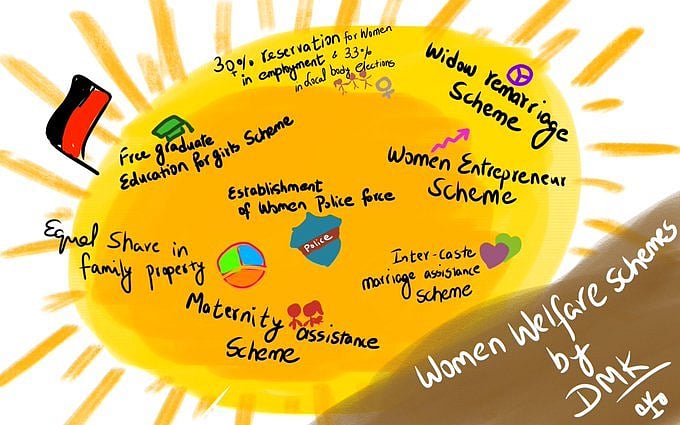 30+% reservation for Women
in employment & 33%
in Local body elections
Widow remarriage
Scheme
Free graduate
Education for girls Scheme
Women Entrepreneur
Scheme
Establishment
of Women Police force
Police
Equal Share in
family property
Inter-caste
marriage assistance
scheme
Maternity assistance
Scheme
Women Welfare schemes
by
DMK